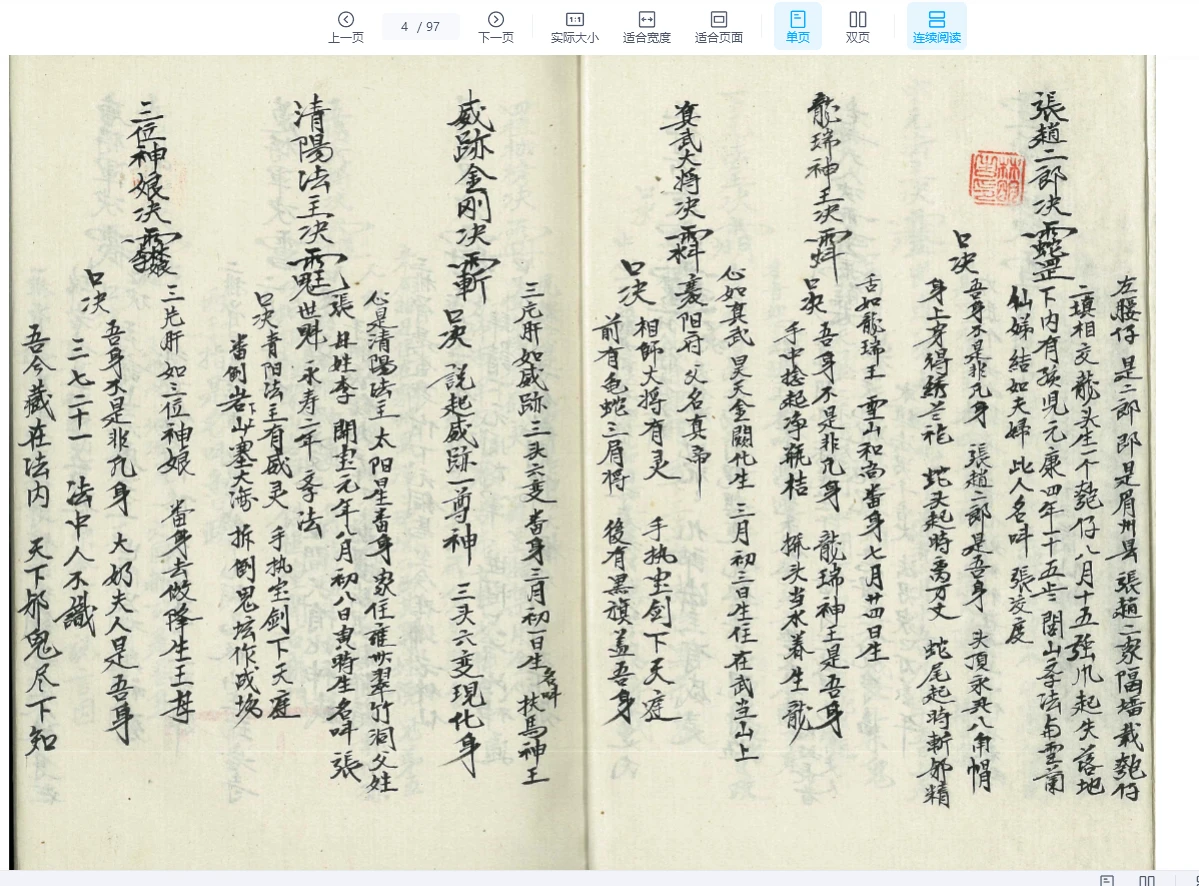 上一页
4 / 97
下一页
1:1
实际大小
适合宽度
适合页面
单页
双页
连续阅读
張趙二郎決
左腰仔 是二郎 郎是眉州縣 張趙二家隔墻栽匏仔
二瓆相交龍头生一个匏仔八月十五強爪起失落地
下内有孩児元康四年二十五 閭山孝法与雪蘭
仙娣結如夫婦 此人名呌 張交度
口決
吾身不是非凡身 張趙二郎是吾身 头頂永 八角帽
身上穿得綉 蛇头起時高万丈 蛇尾起時斬邪精
龍瑞神王決
舌如龍瑞王 雪山和尚畨身七月廿四日生
口決 吾身不是非凡身 龍瑞神王是吾身
手中捻起净瓶桔 搽头当水養生龍
真武大将決
心如真武 昊天金闕化生 三月初三日生住在武当山上
夌阳府 父名真帝
口決 相師大将有灵 手执宝剑下天庭
前有色蛇二眉将 後有黑旗盖吾身
威跡金刚決
三片肝如威跡 三头六变 畨身三月初一日生 名呌 扶馬神王
口決 説起威跡一尊神 三头六变現化身
清陽法主決
心是清陽法主 太阳星畨身 家住 州翠竹洞父姓
張 母姓李 開宝元年八月初八日寅時生名呌張
世魁 永寿二年 孝法
口決 青阳法主有威灵 手执宝剑下天庭
畨倒岩山塞大海 拆倒鬼坛作成坟
三位神娘決
三片肝如三位神娘 畨身去做降生王母
口決 吾身不是非凡身 大奶夫人是吾身
三七二十一 法中人不識
吾今藏在法内 天下邪鬼尽下知